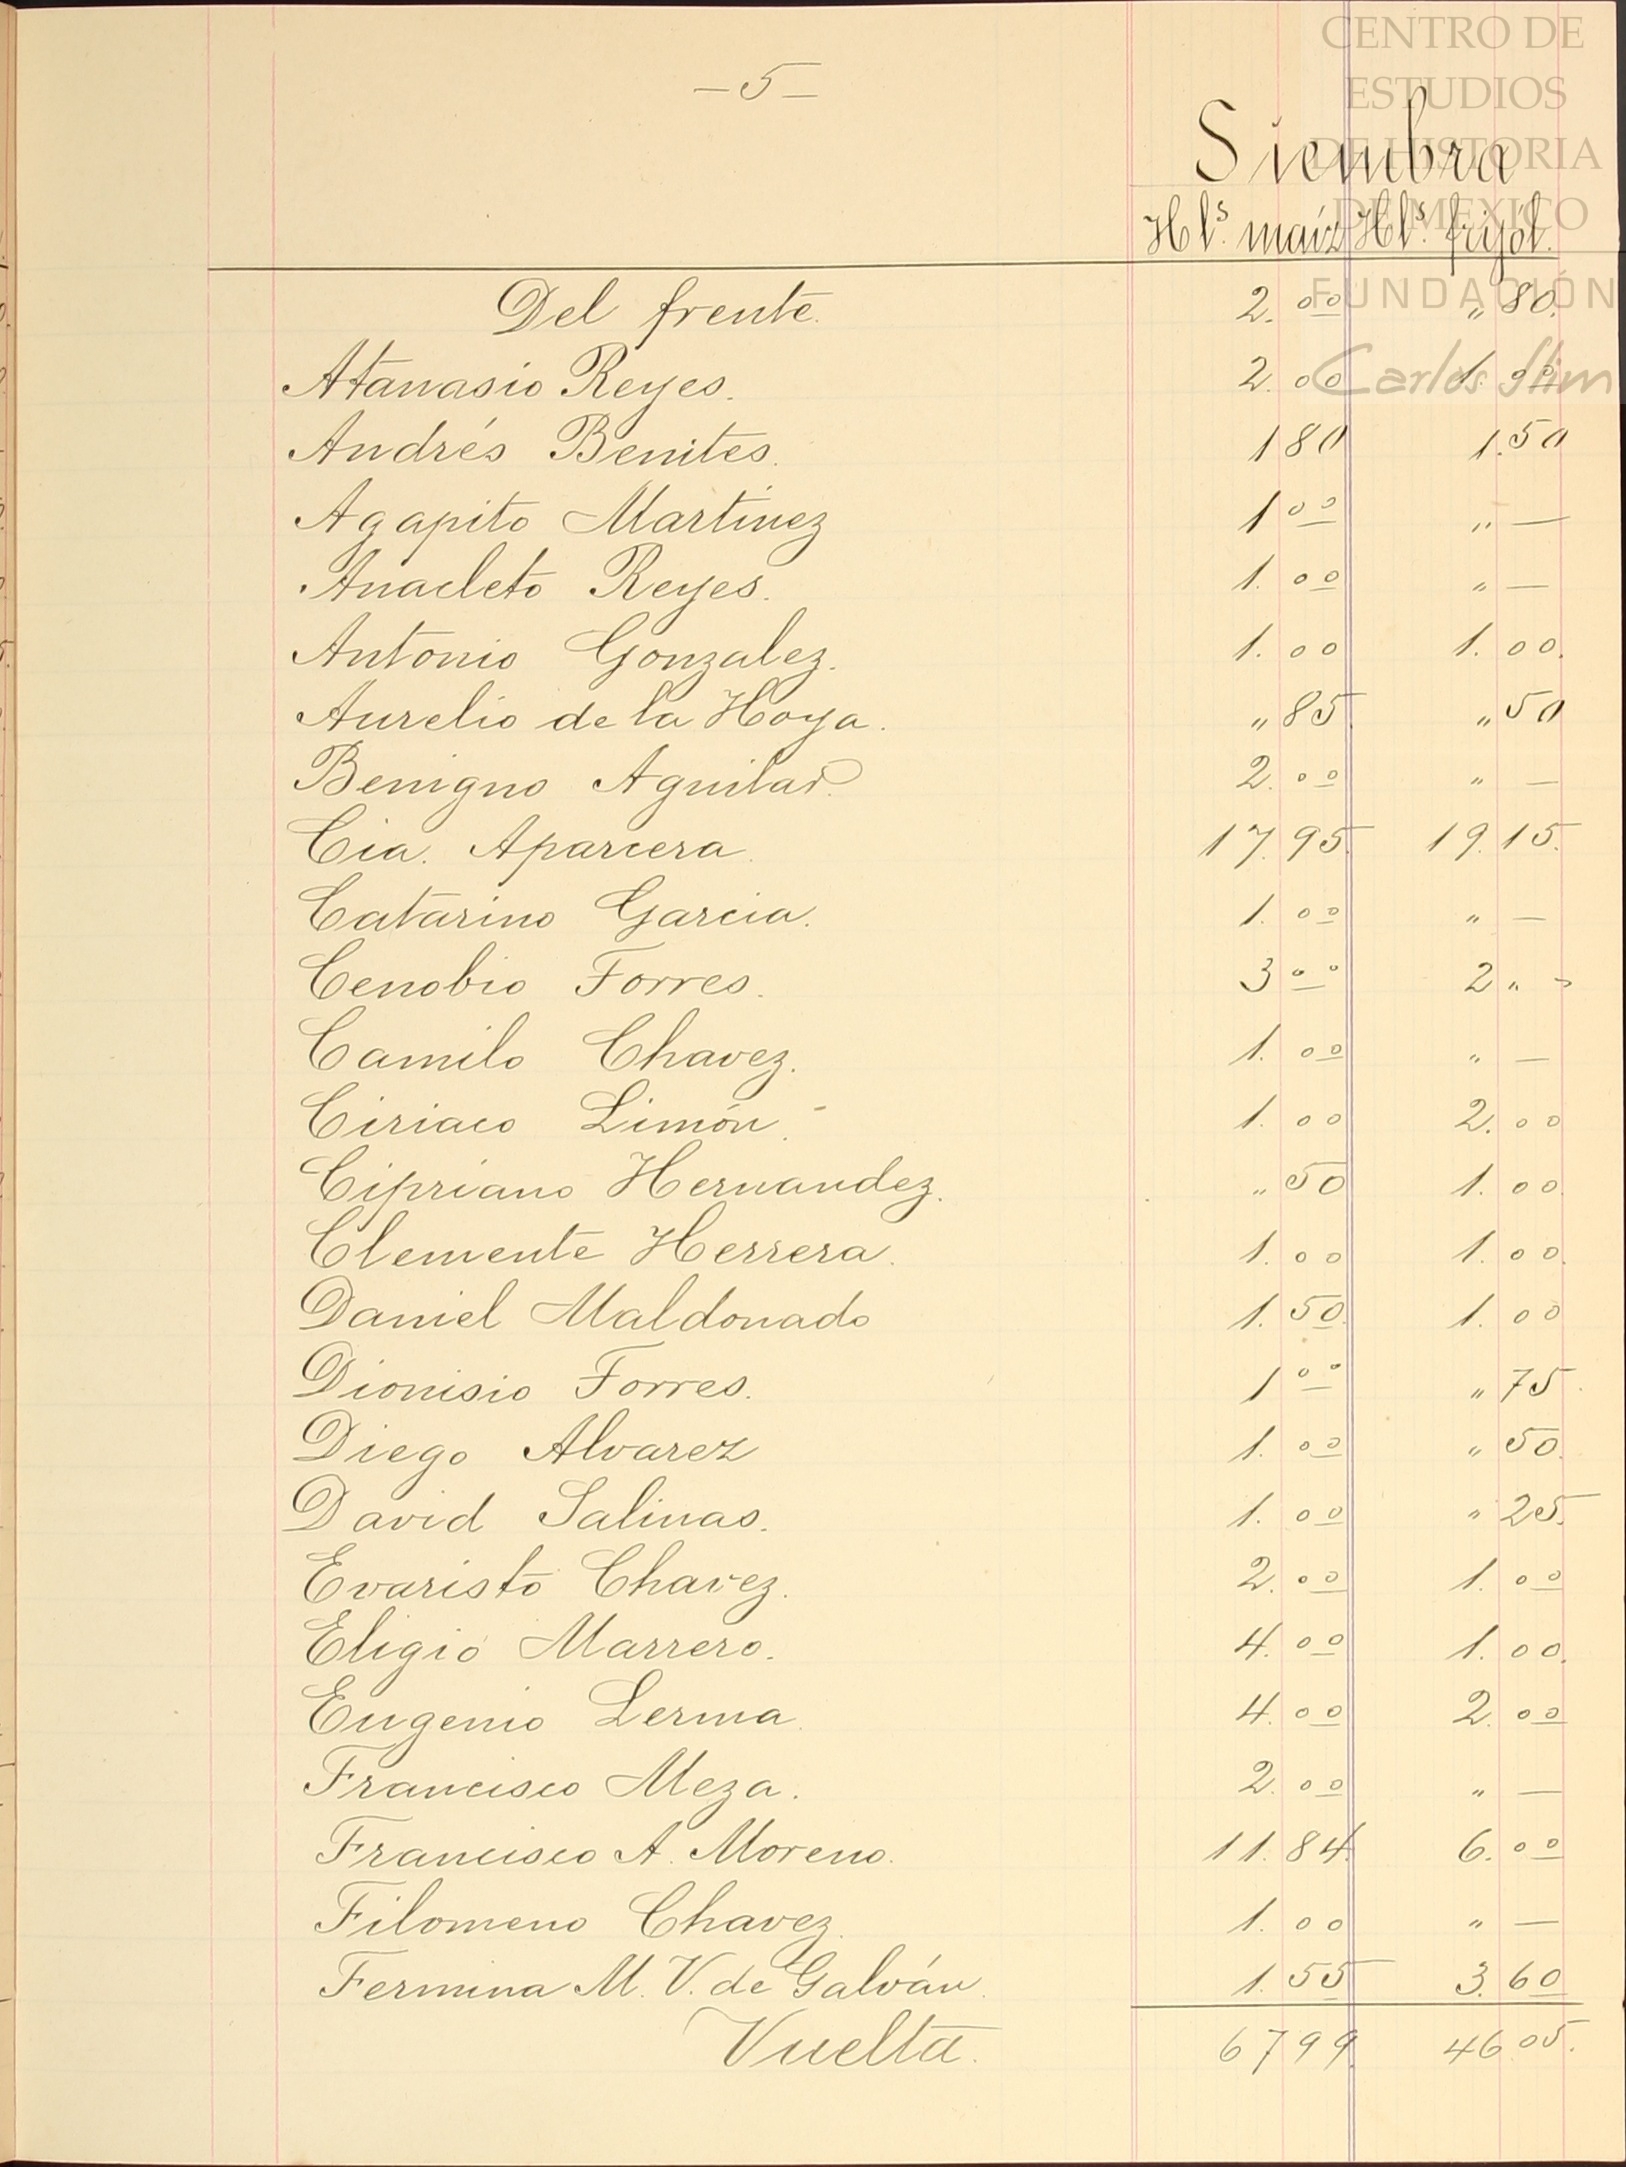 CENTRO DE
ESTUDIOS
DE HISTORIA
DE MEXICO
FUNDACIÓN
Carlos Slim
— 5 —
Siembra
Hls. maíz Hls. frijól.
Del frente. 2.00 " 80.
Atanasio Reyes. 2.00 1.00
Andrés Benites. 1 80 1.50
Agapito Martinez 1 00 " —
Anacleto Reyes. 1.00 " —
Antonio Gonzalez. 1.00 1.00.
Aurelio de la Hoya. " 85. " 50
Benigno Aguilar. 2.00 " —
Cia. Aparcera. 17.95. 19.15.
Catarino Garcia. 1.00 " —
Cenobio Torres. 3 00 2 " -
Camilo Chavez. 1.00 " —
Ciriaco Limón. 1.00 2.00
Cipriano Hernandez. " 50 1.00.
Clemente Herrera. 1.00 1.00.
Daniel Maldonado 1.50. 1.00
Dionisio Torres. 1 00 " 75.
Diego Alvarez 1.00 " 50.
David Salinas. 1.00 " 25.
Evaristo Chavez. 2.00 1.00
Eligio Marrero. 4.00 1.00.
Eugenio Lerma. 4.00 2.00
Francisco Meza. 2.00 " —
Francisco A. Moreno. 11.84. 6.00
Filomeno Chavez. 1.00 " —
Fermina M. V. de Galván. 1.55 3.60
Vuelta. 67 99. 46 05.